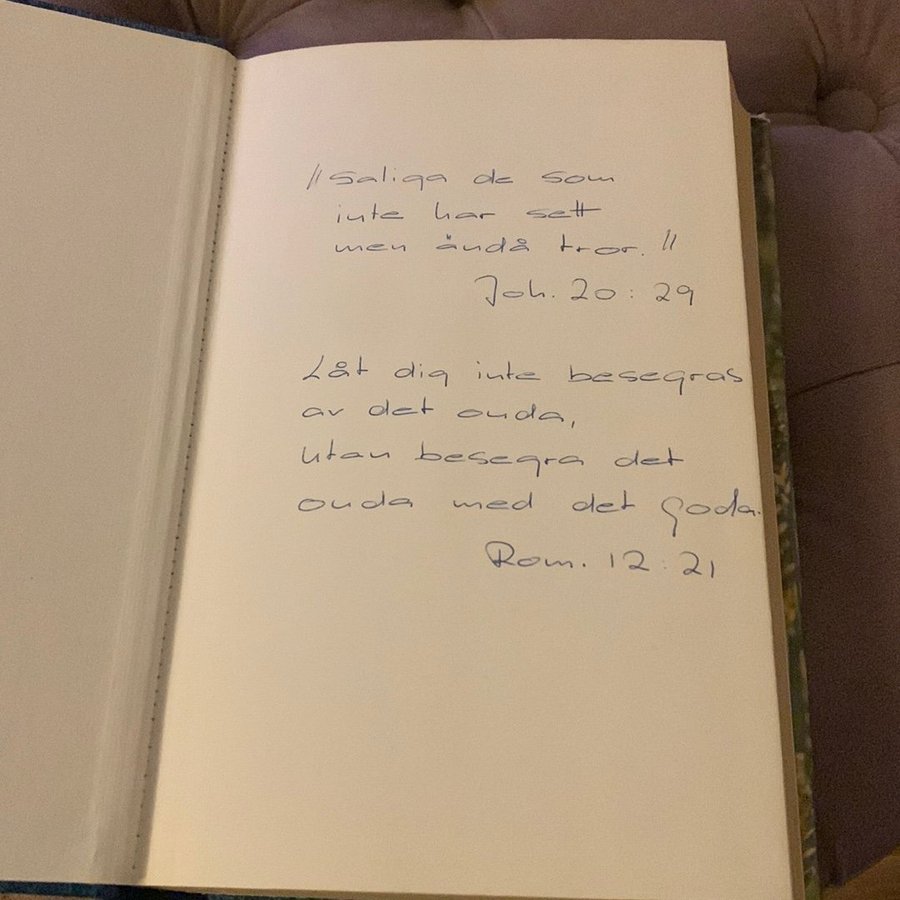 "Saliga de som
inte har sett
men ändå tror."
Joh. 20:29
Låt dig inte besegras
av det onda,
utan besegra det
onda med det goda.
Rom. 12:21